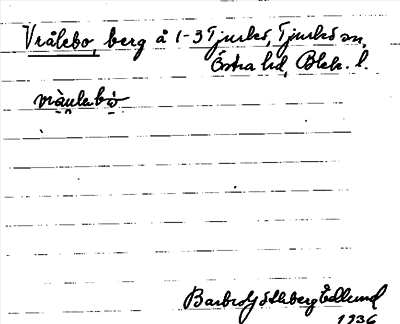 Vrålebo, berg å 1-3 Tjurkö, Tjurkö sn,
Östra hd, Blek. l.
vrà̀ulebò
Barbro Göthberg Edlund
1936